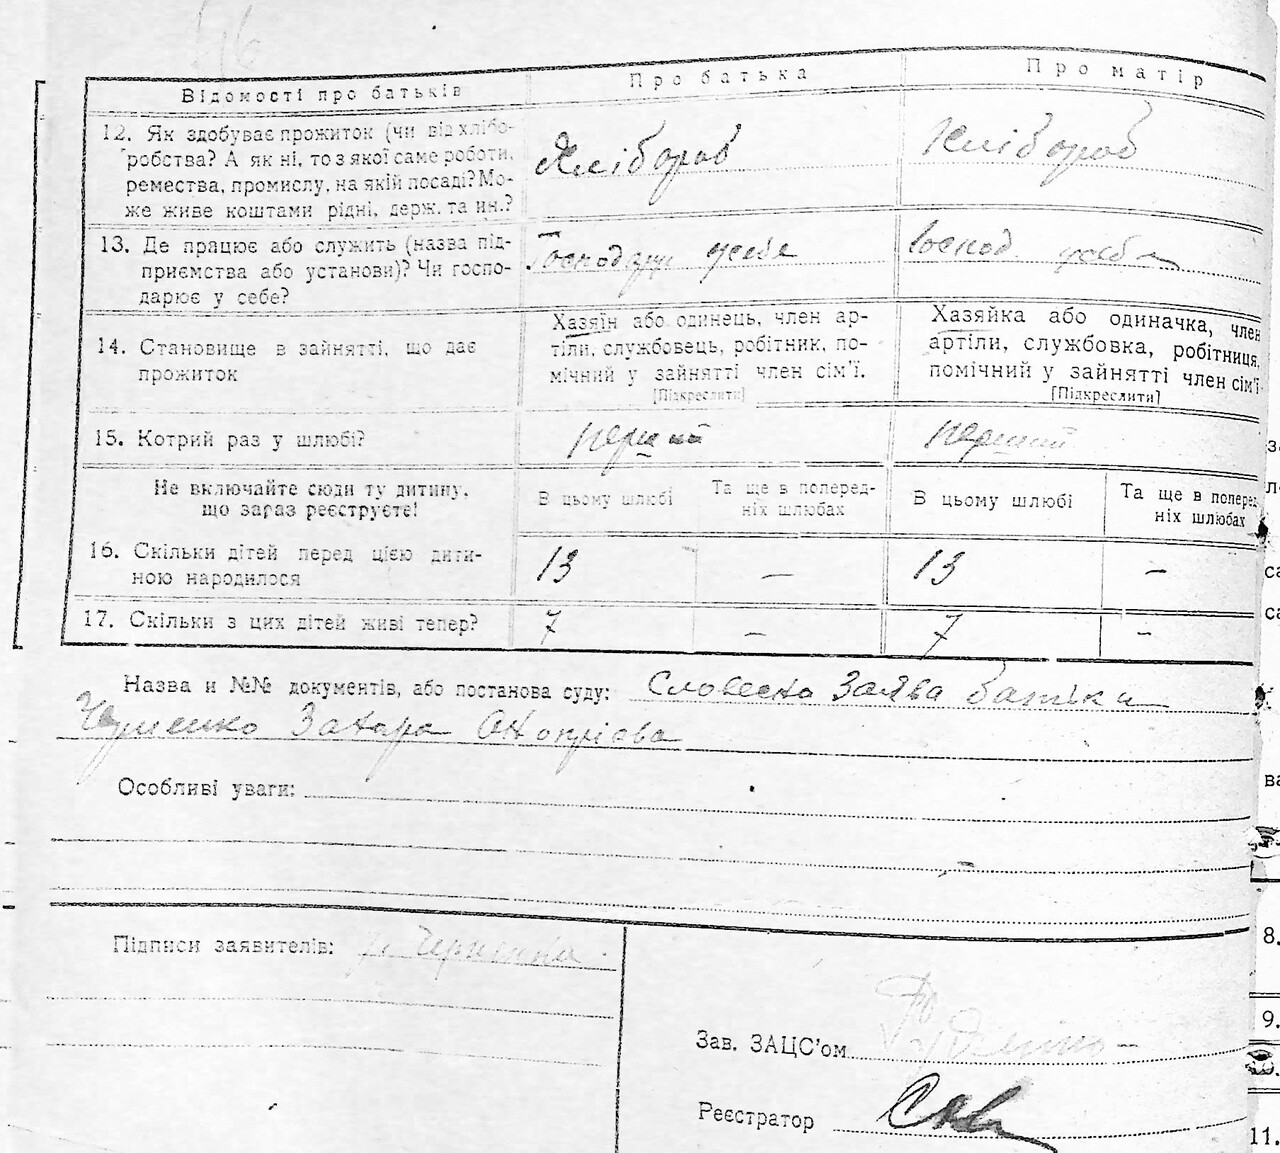 516
Відомості про батьків
Про батька
Про матір
12. Як здобуває прожиток (чи від хлібо-
робства? А як ні, то з якої саме роботи,
ремества, промислу, на якій посаді? Мо-
же живе коштами рідні, держ. та ин.?
Хлібороб
Хлібороб
13. Де працює або служить (назва під-
приємства або установи)? Чи госпо-
дарює у себе?
Господарь у себя
Господ. у себя
14. Становище в зайнятті, що дає
прожиток
Хазяїн або одинець, член ар-
тіли, службовець, робітник, по-
мічний у зайнятті член сім'ї.
[Підкреслити]
Хазяйка або одиначка, член
артіли, службовка, робітниця,
помічний у зайнятті член сім'ї
[Підкреслити]
15. Котрий раз у шлюбі?
перший
перший
Не включайте сюди ту дитину,
що зараз реєструєте!
В цьому шлюбі
Та ще в поперед-
ніх шлюбах
В цьому шлюбі
Та ще в поперед-
ніх шлюбах
16. Скільки дітей перед цією дити-
ною народилося
13
—
13
—
17. Скільки з цих дітей живі тепер?
7
—
7
—
Назва и №№ документів, або постанова суду: Словесна Заява батька
Захара
Особливі уваги:
Підписи заявителів:
Зав. ЗАЦС'ом
Реєстратор
8.
9.
11.